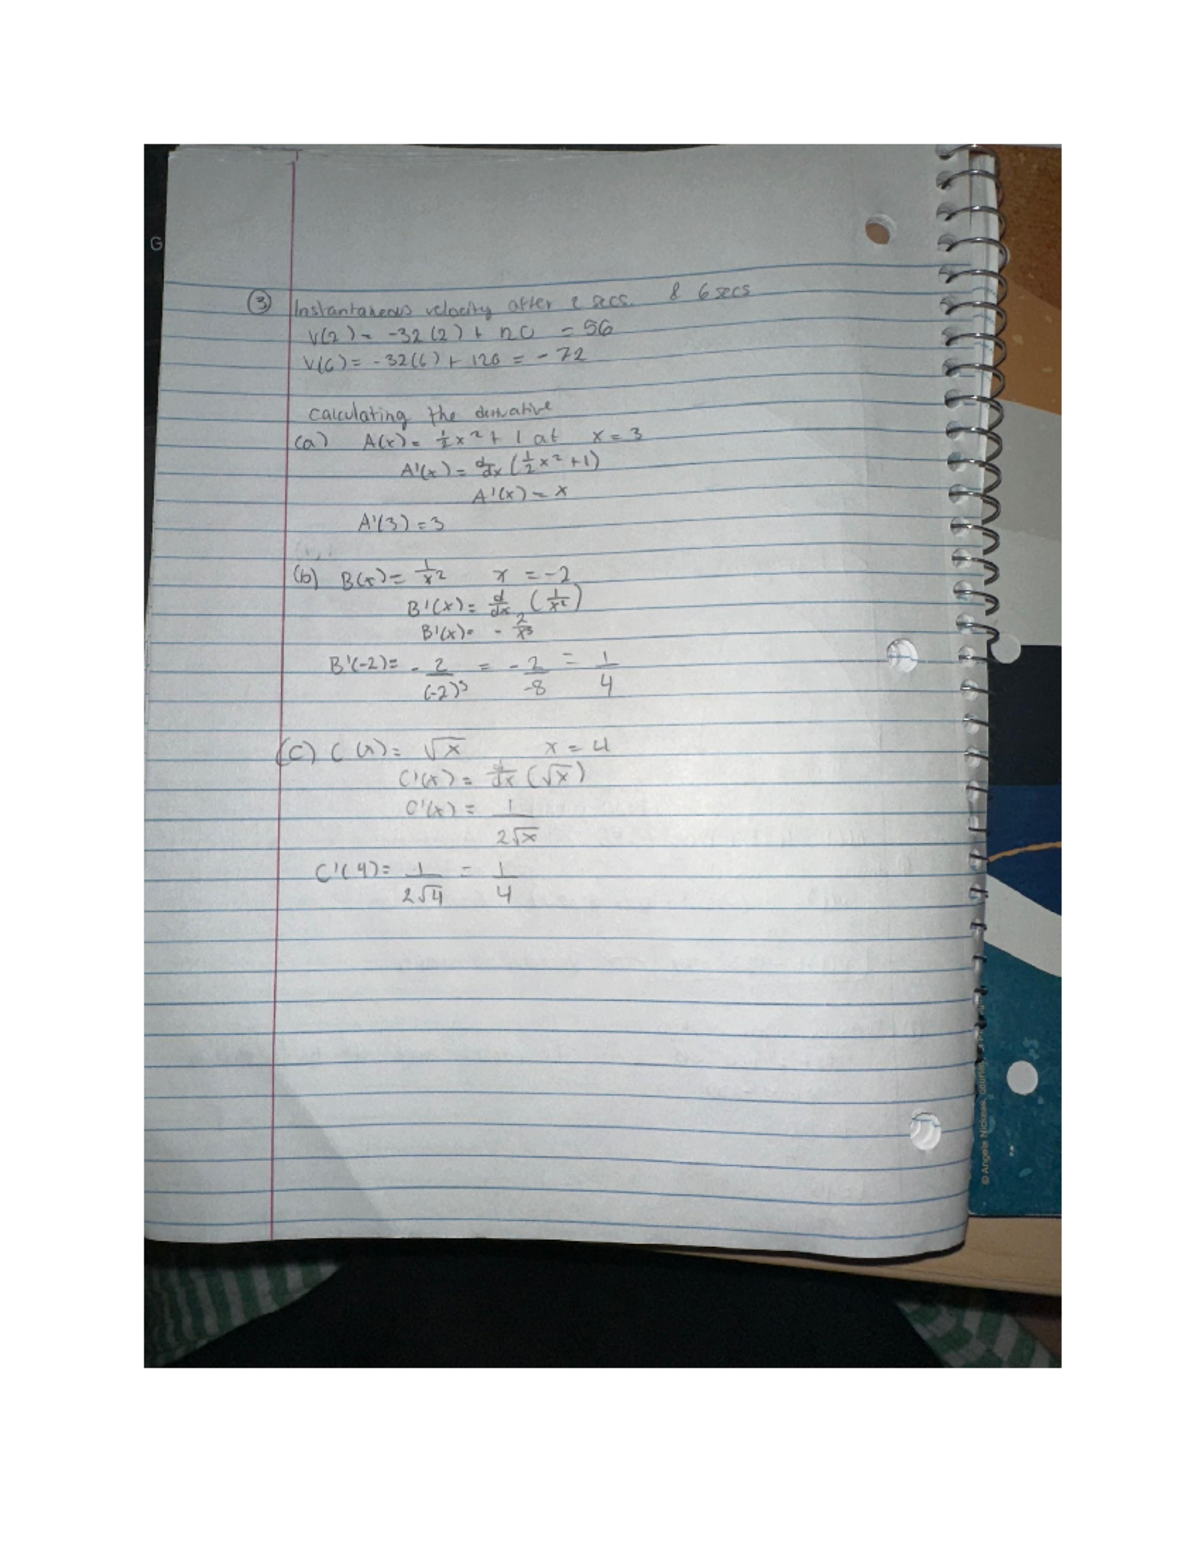 ③ Instantaneous velocity after 2 secs. & 6 secs
V(2) = -32(2) + 120 = 56
V(6) = -32(6) + 120 = -72
Calculating the derivative
(a) A(x) = 1/2 x² + 1 at x = 3
A'(x) = d/dx (1/2 x² + 1)
A'(x) = x
A'(3) = 3
(b) B(x) = 1/x² x = -2
B'(x) = d/dx (1/x²)
B'(x) = - 2/x³
B'(-2) = - 2/(-2)³ = - 2/-8 = 1/4
(C) C(x) = √x x = 4
C'(x) = d/dx (√x)
C'(x) = 1/2√x
C'(4) = 1/2√4 = 1/4
G
© Angela Nickeas